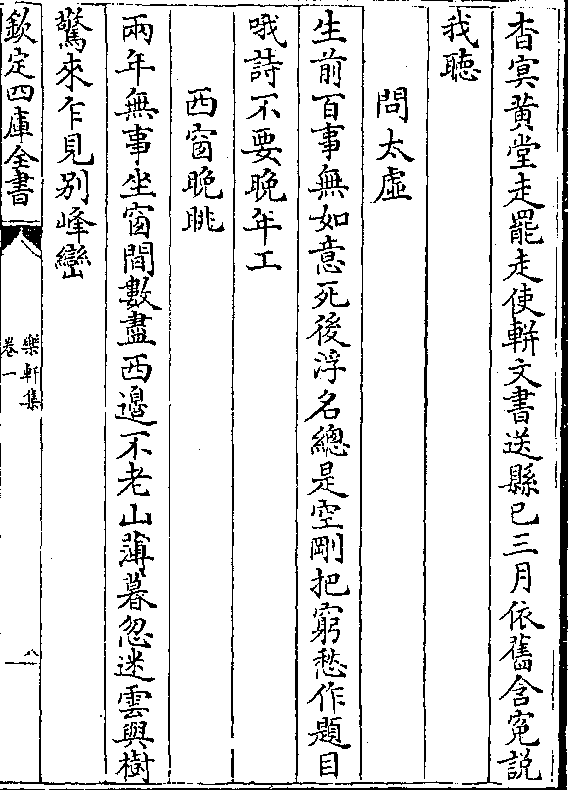 杳冥黄堂走罷走使軿文書送縣已三月依舊含寃説
我聽
問太虚
生前百事無如意死後浮名總是空剛把窮愁作題目
哦詩不要晚年工
西窗晚眺
兩年無事坐窗間數盡西邉不老山薄暮忽迷雲與樹
驚來乍見别峰巒
欽定四庫全書
樂軒集
卷一
八